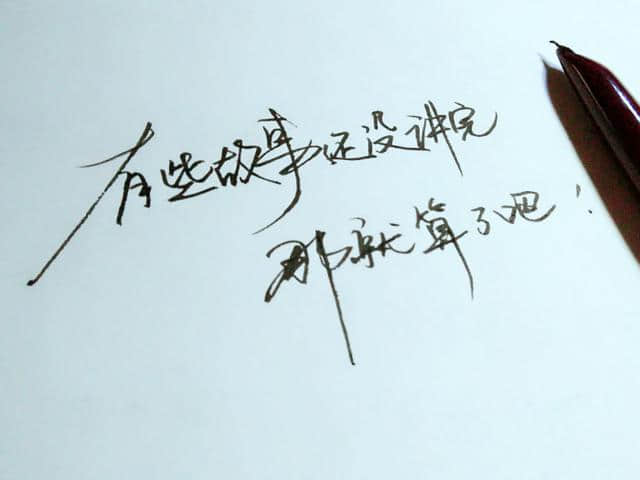 有些故事还没讲完
那就算了吧!